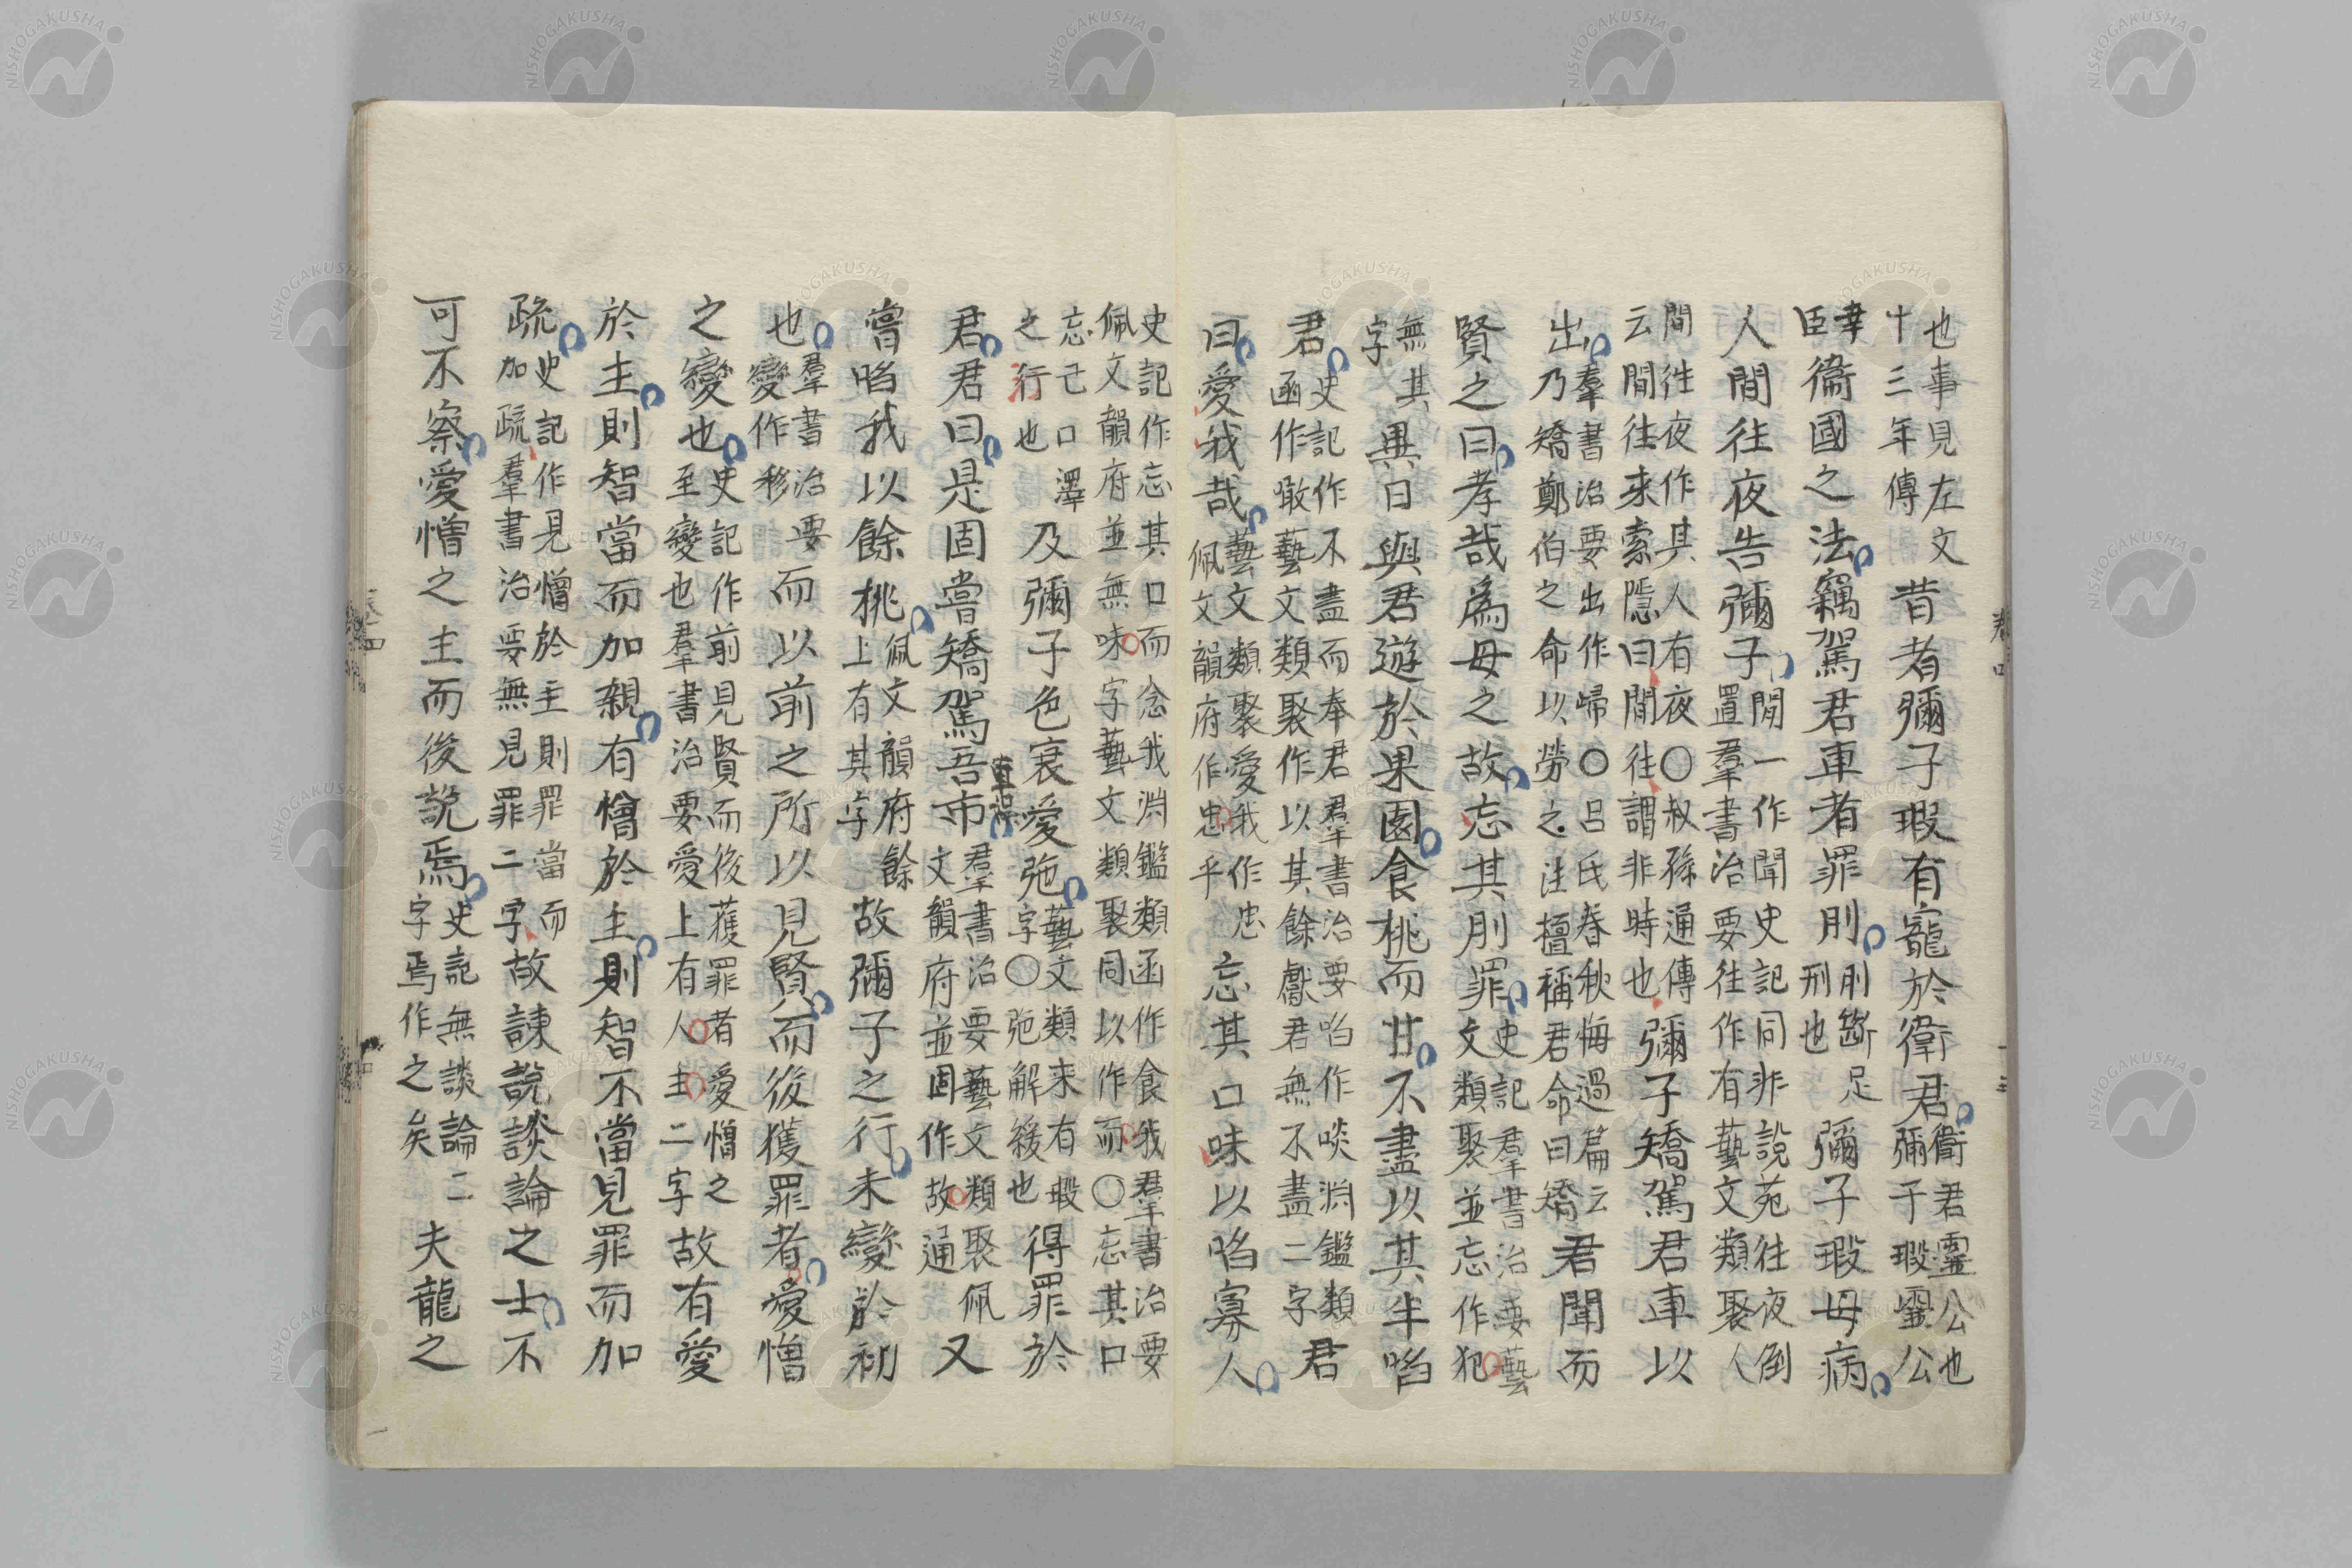 也事見左文
十三年傳
昔者彌子瑕有寵於衛君
衛君靈公也
彌子瑕靈公
幸
臣
衞國之法竊駕君車者罪刖
刖斷足
刑也
彌子瑕母病
人間往夜告彌子
間一作聞史記同非說苑往夜倒
置羣書治要往作有藝文類聚人
間往夜作其人有夜〇叔孫通傳
云間往来索隱曰間往謂非時也
彌子矯駕君車以
出
羣書治要出作歸〇呂氏春秋悔過篇云
乃矯鄭伯之命以勞之注擅稱君命曰矯
君聞而
賢之曰孝哉為母之故忘其刖罪
史記羣書治要藝
文類聚並忘作犯
無其
字
異日與君遊於果園食桃而甘不盡以其半啗
君
史記作不盡而奉君羣書治要啗作啖淵鑑類
函作噉藝文類聚作以其餘獻君無不盡二字
君
曰愛我哉
藝文類聚愛我作忠
佩文韻府作忠乎
忘其口味以啗寡人
史記作忘其口而念我淵鑑類函作食我羣書治要
佩文韻府並無味字藝文類聚同以作而〇忘其口
忘己口澤
之行也
及彌子色衰愛弛
藝文類来有瑕
字〇弛解緩也
得罪於
君君曰是固嘗矯駕吾車
羣書治要藝文類聚佩
文韻府並固作故通
又
嘗啗我以餘桃
佩文韻府餘
上有其字
故彌子之行未變於初
也
羣書治要
變作移
而以前之所以見賢而後獲罪者愛憎
之變也
史記作前見賢而後獲罪者愛憎之
至變也羣書治要愛上有人主二字
故有愛
於主則智當而加親有憎於主則智不當見罪而加
疏
史記作見憎於主則罪當而
加疏羣書治要無見罪二字
故諫說談論之士不
可不察愛憎之主而後說焉
史記無談論二
字焉作之矣
夫龍之